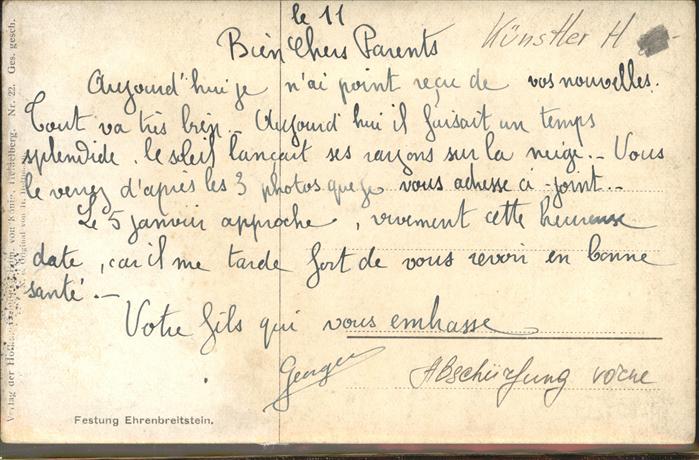 le 11
Künstler H
Bien Chers Parents
Aujourd'hui je n'ai point reçu de vos nouvelles.
Tout va très bien. Aujourd'hui il faisait un temps
splendide, le soleil lançait ses rayons sur la neige. - Vous
le verrez d'après les 3 photos que je vous adresse ci-joint. -
Le 5 janvier approche, vivement cette heureuse
date, car il me tarde fort de vous revoir en bonne
santé. -
Votre fils qui vous embrasse
Georges
Abschürfung vorne
Festung Ehrenbreitstein.
Verlag der Hof Heidelberg. Nr. 22. Ges. gesch.